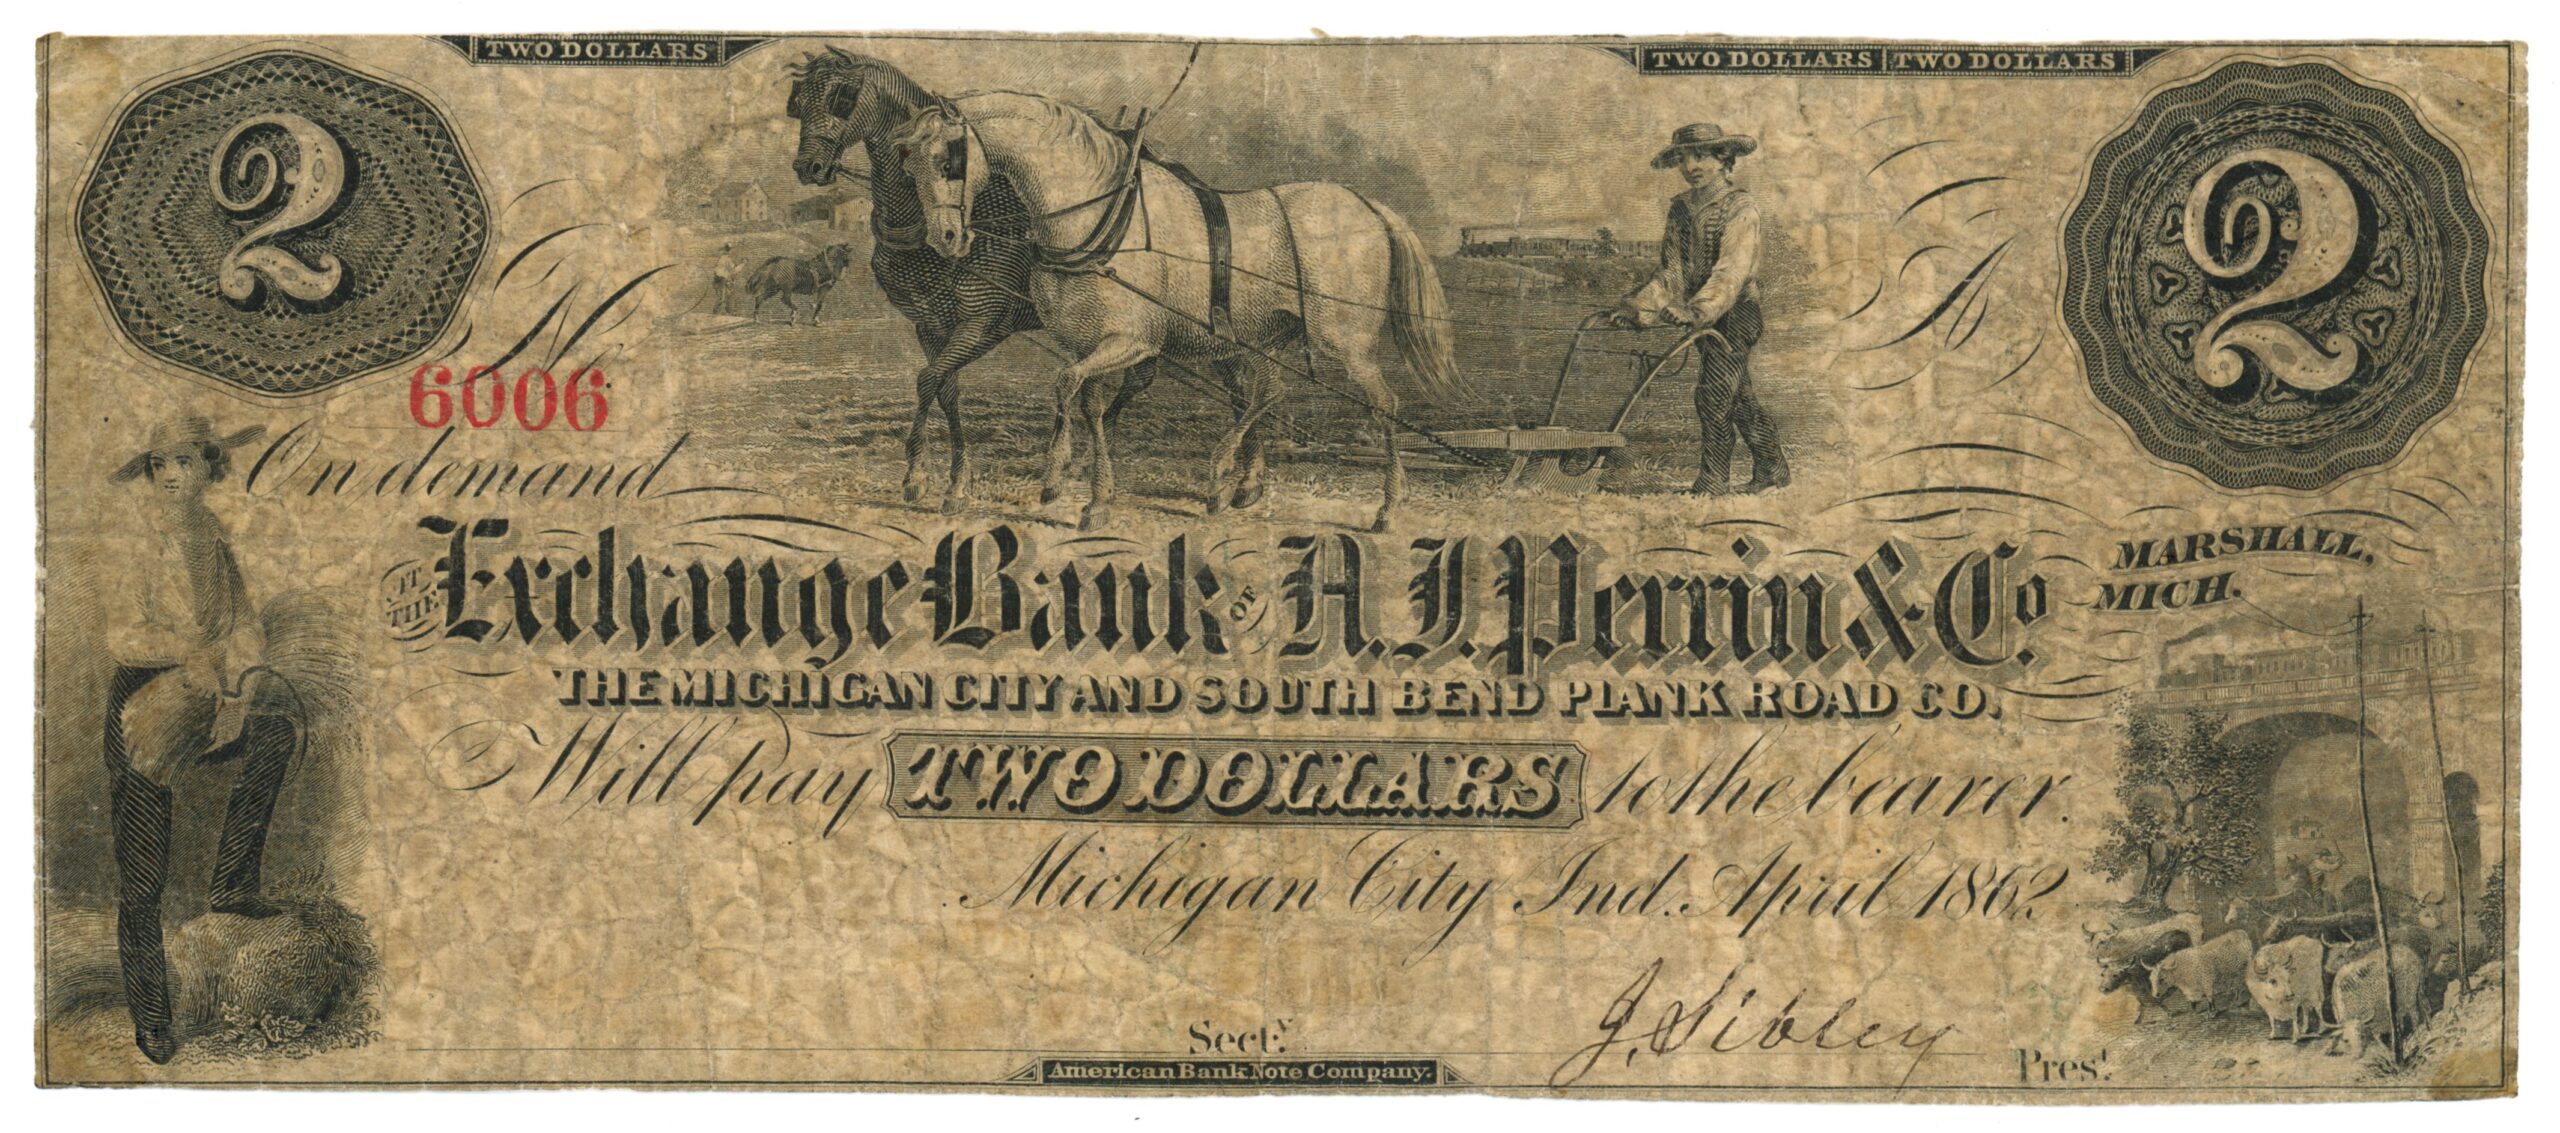 TWO DOLLARS
TWO DOLLARS TWO DOLLARS
2
2
No.
A
6006
On demand
AT THE Exchange Bank OF A. J. Perrin & Co. MARSHALL, MICH.
THE MICHIGAN CITY AND SOUTH BEND PLANK ROAD CO.
Will pay TWO DOLLARS to the bearer.
Michigan City Ind. April 1862
J. Sibley
Secty.
Prest.
American Bank Note Company.